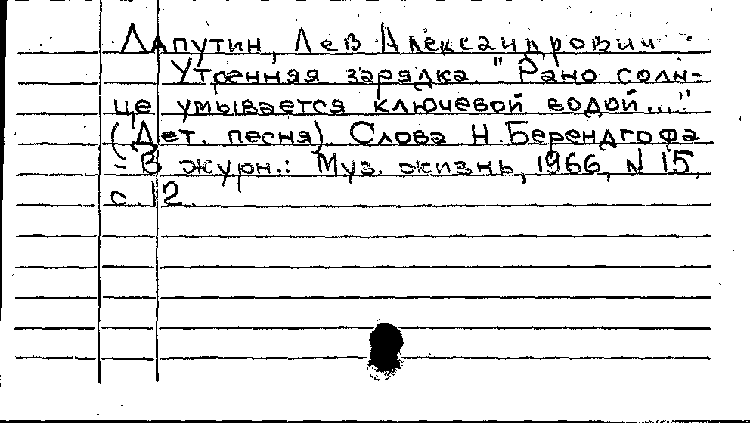 Лапутин, Лев Александрович.
Утренняя зарядка. "Рано солн-
це умывается ключевой водой..."
(Дет. песня). Слова Н. Берендгофа
- В журн.: Муз. жизнь, 1966, N 15,
с. 12.